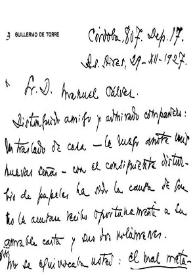 GUILLERMO DE TORRE
Córdoba, 817. Dep. 17.
Bs. Aires, 29-XII-1927.
Sr. D. Manuel
Distinguido amigo y admirado compañero:
Un traslado de casa – la mejor entre mis
nuevas – con el consiguiente distur-
bio de papeles ha sido la causa de
no la acusara recibo oportunamente a su
amable carta y sus dos volúmenes.
No se equivocaba usted: el mal meta-